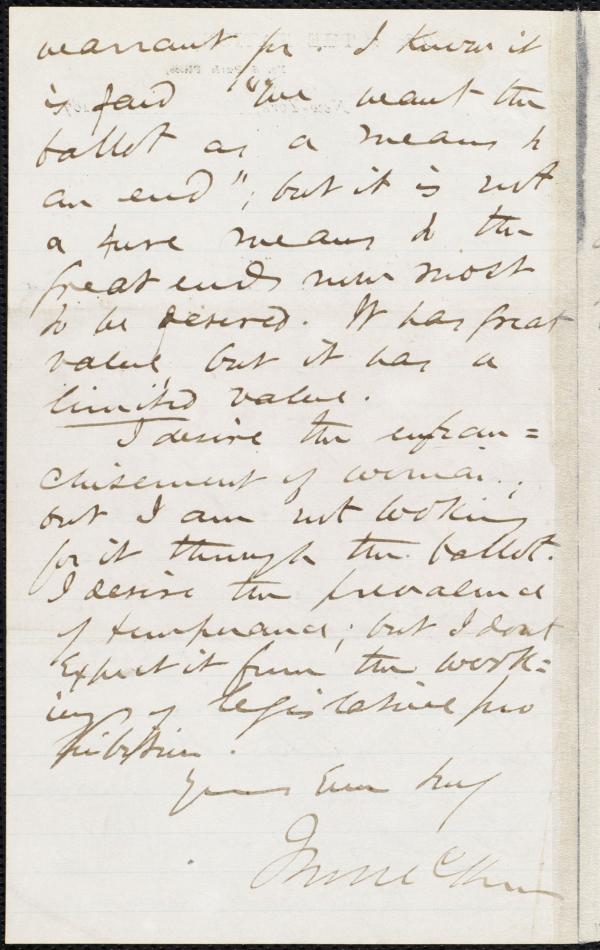 warrant for I know it
is said "we want the
ballot as a means to
an end"; but it is not
a sure means to the
great ends now most
to be desired. It has great
value, but it has a
limited value.
I desire the enfran=
chisement of woman;
but I am not looking
for it through the ballot.
I desire the prevalence
of temperance; but I dont
Expect it from the work=
ing of legislative pro
hibition.
Yours Ever truly